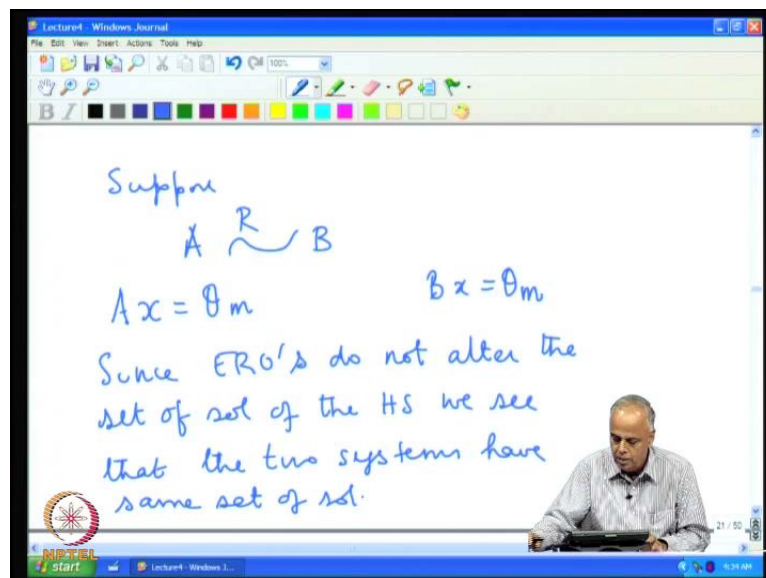 Lecture4 - Windows Journal
File Edit View Insert Actions Tools Help
100%
B I
Suppose
A R~ B
Ax = θm Bx = θm
Since ERO's do not alter the
set of sol of the HS we see
that the two systems have
same set of sol.
21 / 50
NPTEL
start Lecture4 - Windows J... 4:39 AM